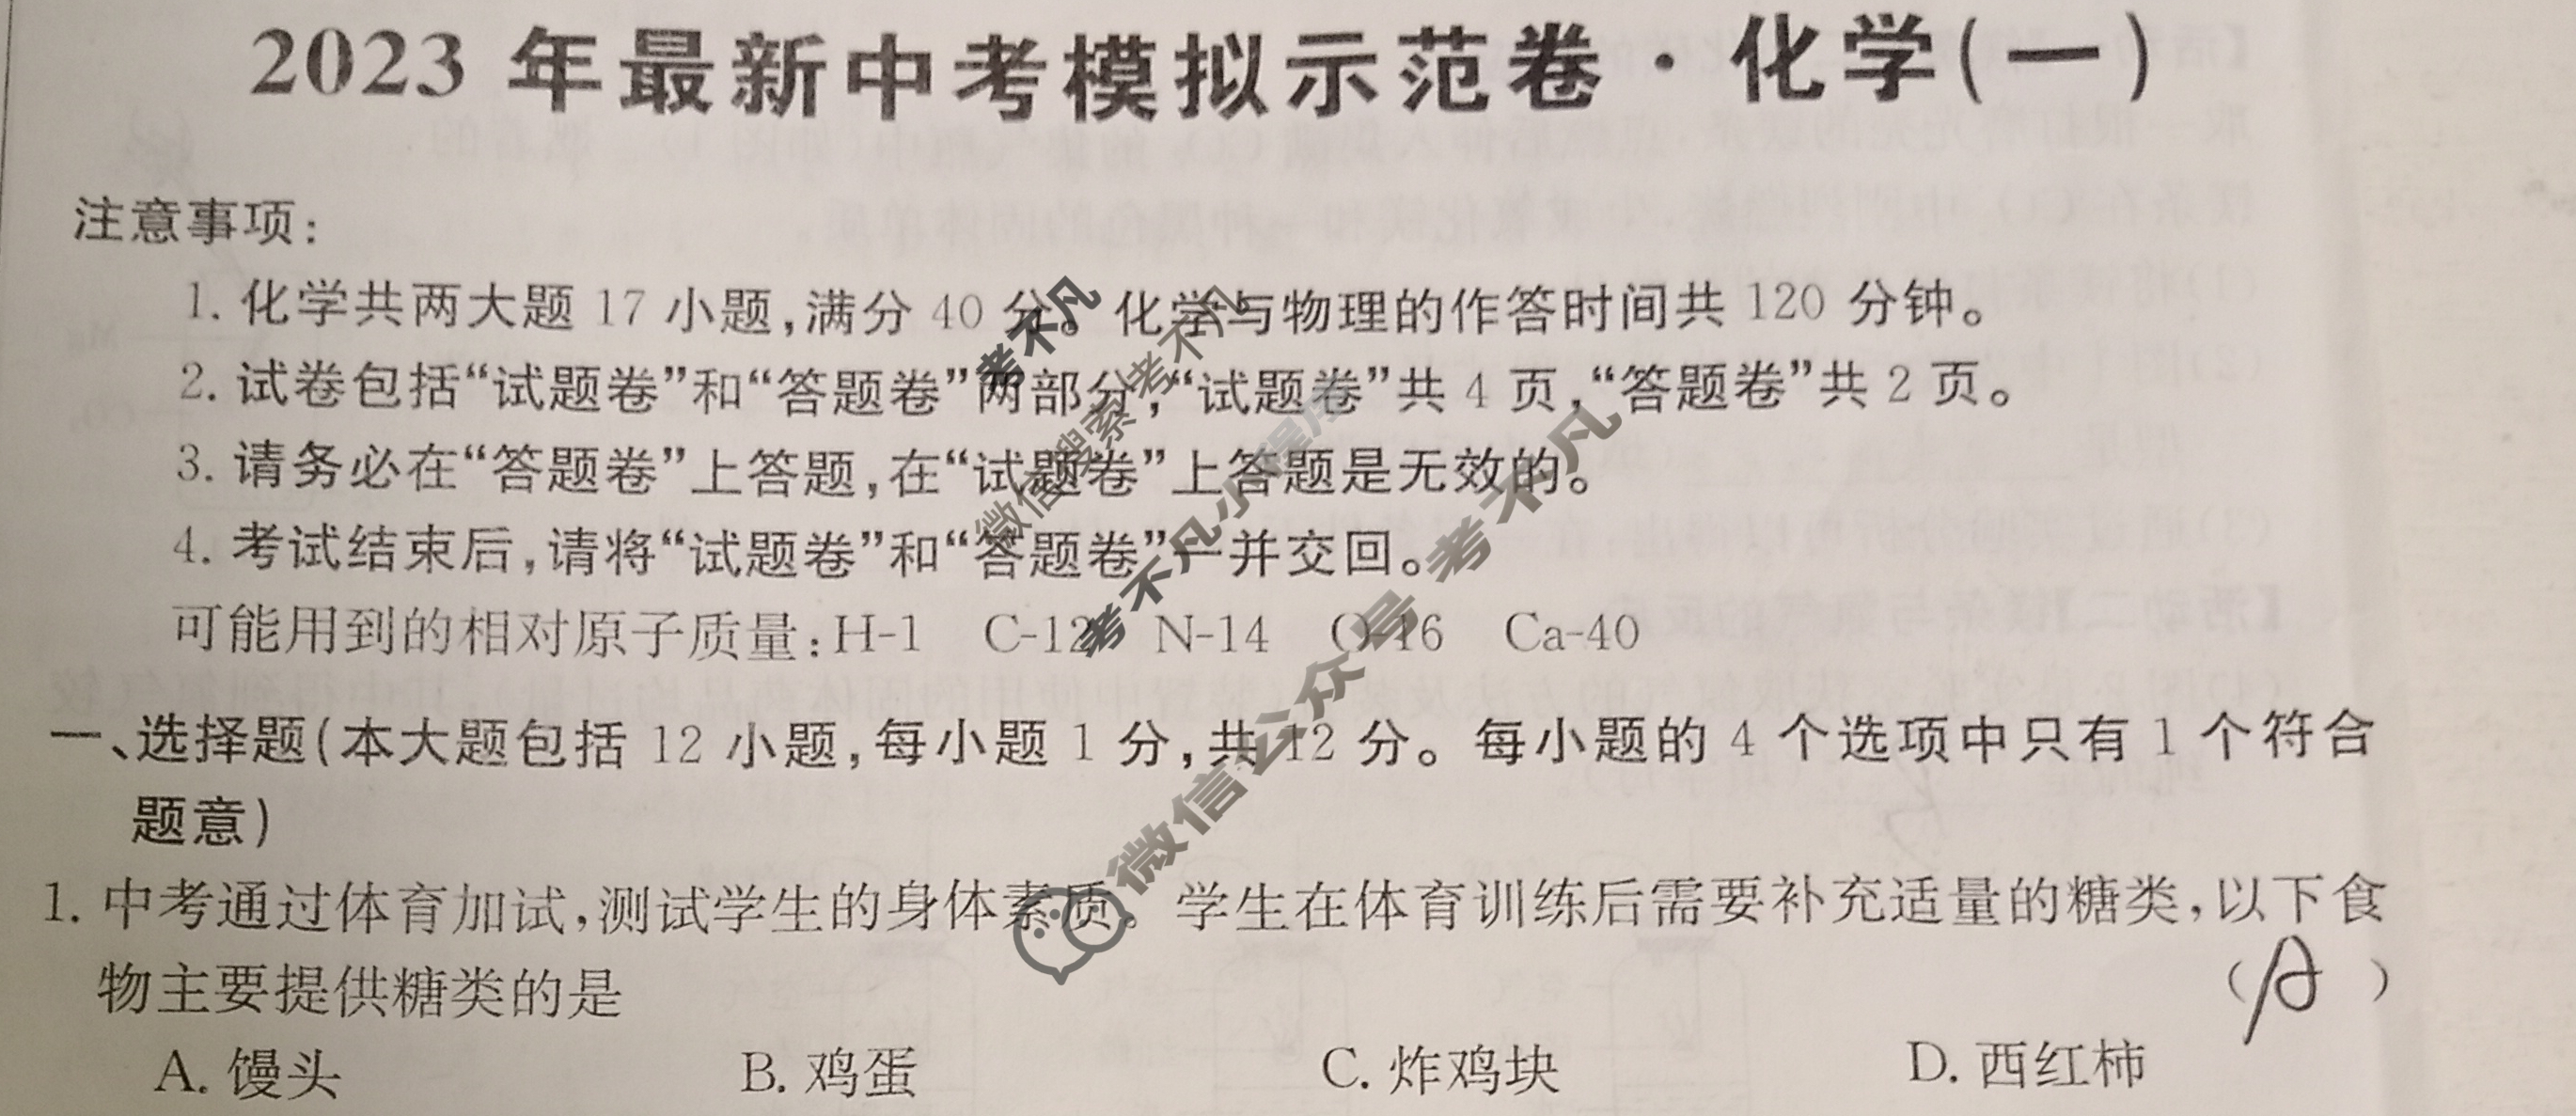 2023 年最新中考模拟示范卷·化学(一)
注意事项:
1. 化学共两大题 17 小题,满分 40 分。化学与物理的作答时间共 120 分钟。
2. 试卷包括“试题卷”和“答题卷”两部分,“试题卷”共 4 页,“答题卷”共 2 页。
3. 请务必在“答题卷”上答题,在“试题卷”上答题是无效的。
4. 考试结束后,请将“试题卷”和“答题卷”一并交回。
可能用到的相对原子质量:H-1 C-12 N-14 O-16 Ca-40
一、选择题(本大题包括 12 小题,每小题 1 分,共 12 分。每小题的 4 个选项中只有 1 个符合
题意)
1. 中考通过体育加试,测试学生的身体素质。学生在体育训练后需要补充适量的糖类,以下食
物主要提供糖类的是 (A)
A. 馒头 B. 鸡蛋 C. 炸鸡块 D. 西红柿
考不凡
微信搜索考不凡
考不凡小程序
微信公众号 考不凡